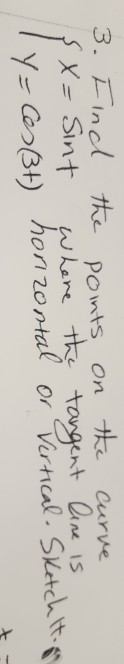 3. Find the points on the curve
{ x = Sint where the tangent line is
y = Cos(3t) horizontal or Vertical. Sketch it.